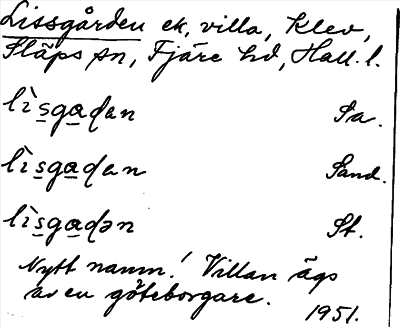 Lissgården ek, villa, Klev,
Släps sn, Fjäre hd, Hall. l.
lìsgaɖan Sa.
lìsgaɖan Sand.
lìsgaɖən St.
Nytt namn! Villan ägs
av en göteborgare.
1951.